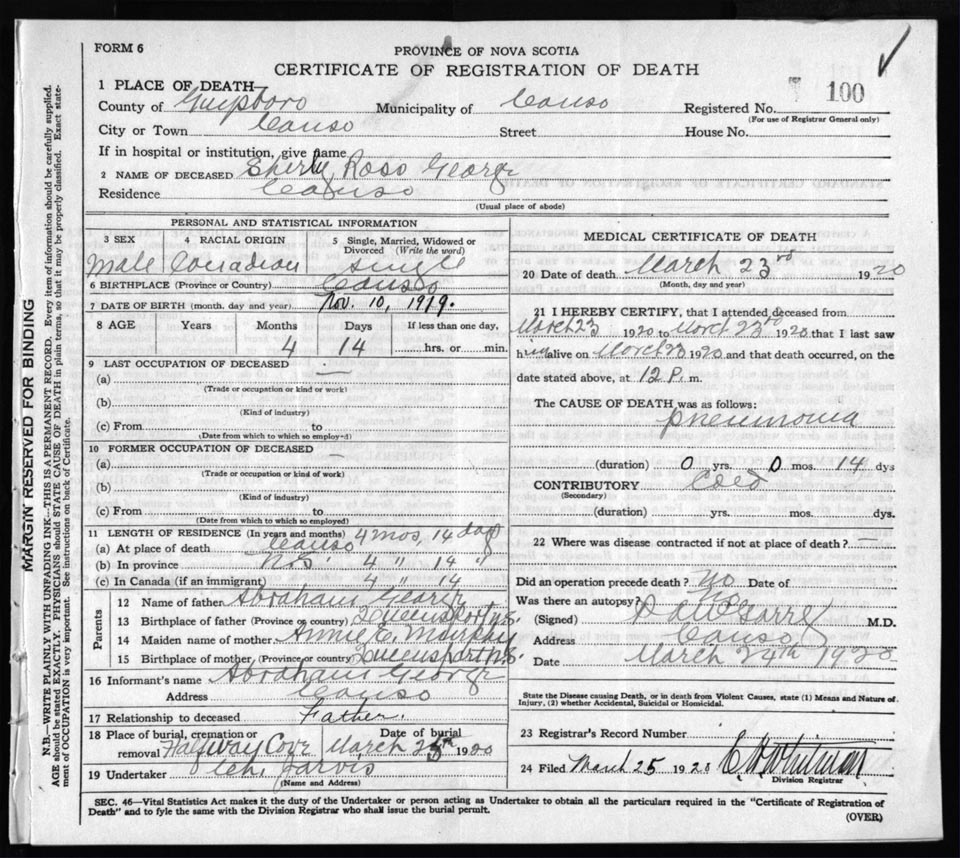 FORM 6
PROVINCE OF NOVA SCOTIA
CERTIFICATE OF REGISTRATION OF DEATH
1 PLACE OF DEATH
County of Guysboro Municipality of Canso Registered No. 100
(For use of Registrar General only)
City or Town Canso Street House No.
If in hospital or institution, give name
2 NAME OF DECEASED Ross George
Residence Canso
(Usual place of abode)
PERSONAL AND STATISTICAL INFORMATION
3 SEX 4 RACIAL ORIGIN 5 Single, Married, Widowed or Divorced (Write the word)
Male Canadian Single
6 BIRTHPLACE (Province or Country) Canso
7 DATE OF BIRTH (month, day and year) Nov. 10, 1919.
8 AGE Years Months Days If less than one day,
4 14 hrs. or min.
9 LAST OCCUPATION OF DECEASED —
(a)
(Trade or occupation or kind of work)
(b)
(Kind of industry)
(c) From to
(Date from which to which so employed)
10 FORMER OCCUPATION OF DECEASED —
(a)
(Trade or occupation or kind of work)
(b)
(Kind of industry)
(c) From to
(Date from which to which so employed)
11 LENGTH OF RESIDENCE (In years and months) 4 mos, 14 days
(a) At place of death Canso
(b) In province 4 " 14 "
(c) In Canada (if an immigrant) 4 " 14
Parents
12 Name of father Abraham George
13 Birthplace of father (Province or country) Queensport N.S.
14 Maiden name of mother Annie E. Murphy
15 Birthplace of mother (Province or country) Queensport N.S.
16 Informant's name Abraham George
Address Canso
17 Relationship to deceased Father.
18 Place of burial, cremation or removal Halfway Cove Date of burial March 25th 1920
19 Undertaker Jarvis
(Name and Address)
MEDICAL CERTIFICATE OF DEATH
20 Date of death March 23rd 1920
(Month, day and year)
21 I HEREBY CERTIFY, that I attended deceased from
March 23 1920 to March 23rd 1920 that I last saw
him alive on March 23 1920 and that death occurred, on the
date stated above, at 12 P. m.
The CAUSE OF DEATH was as follows:
Pneumonia
(duration) 0 yrs. 0 mos. 14 dys
CONTRIBUTORY Cold
(Secondary)
(duration) yrs. mos. dys.
22 Where was disease contracted if not at place of death? —
Did an operation precede death? No Date of
Was there an autopsy? No
(Signed) M.D.
Address Canso
Date March 24th 1920
State the Disease causing Death, or in death from Violent Causes, state (1) Means and Nature of
Injury, (2) whether Accidental, Suicidal or Homicidal.
23 Registrar's Record Number
24 Filed March 25 1920 Whitman
Division Registrar
SEC. 46—Vital Statistics Act makes it the duty of the Undertaker or person acting as Undertaker to obtain all the particulars required in the "Certificate of Registration of
Death" and to fyle the same with the Division Registrar who shall issue the burial permit.
(OVER)
MARGIN RESERVED FOR BINDING
N.B.—WRITE PLAINLY WITH UNFADING INK—THIS IS A PERMANENT RECORD. Every item of information should be carefully supplied.
AGE should be stated EXACTLY. PHYSICIANS should STATE CAUSE OF DEATH in plain terms, so that it may be properly classified. Exact state-
ment of OCCUPATION is very important. See instructions on back of Certificate.